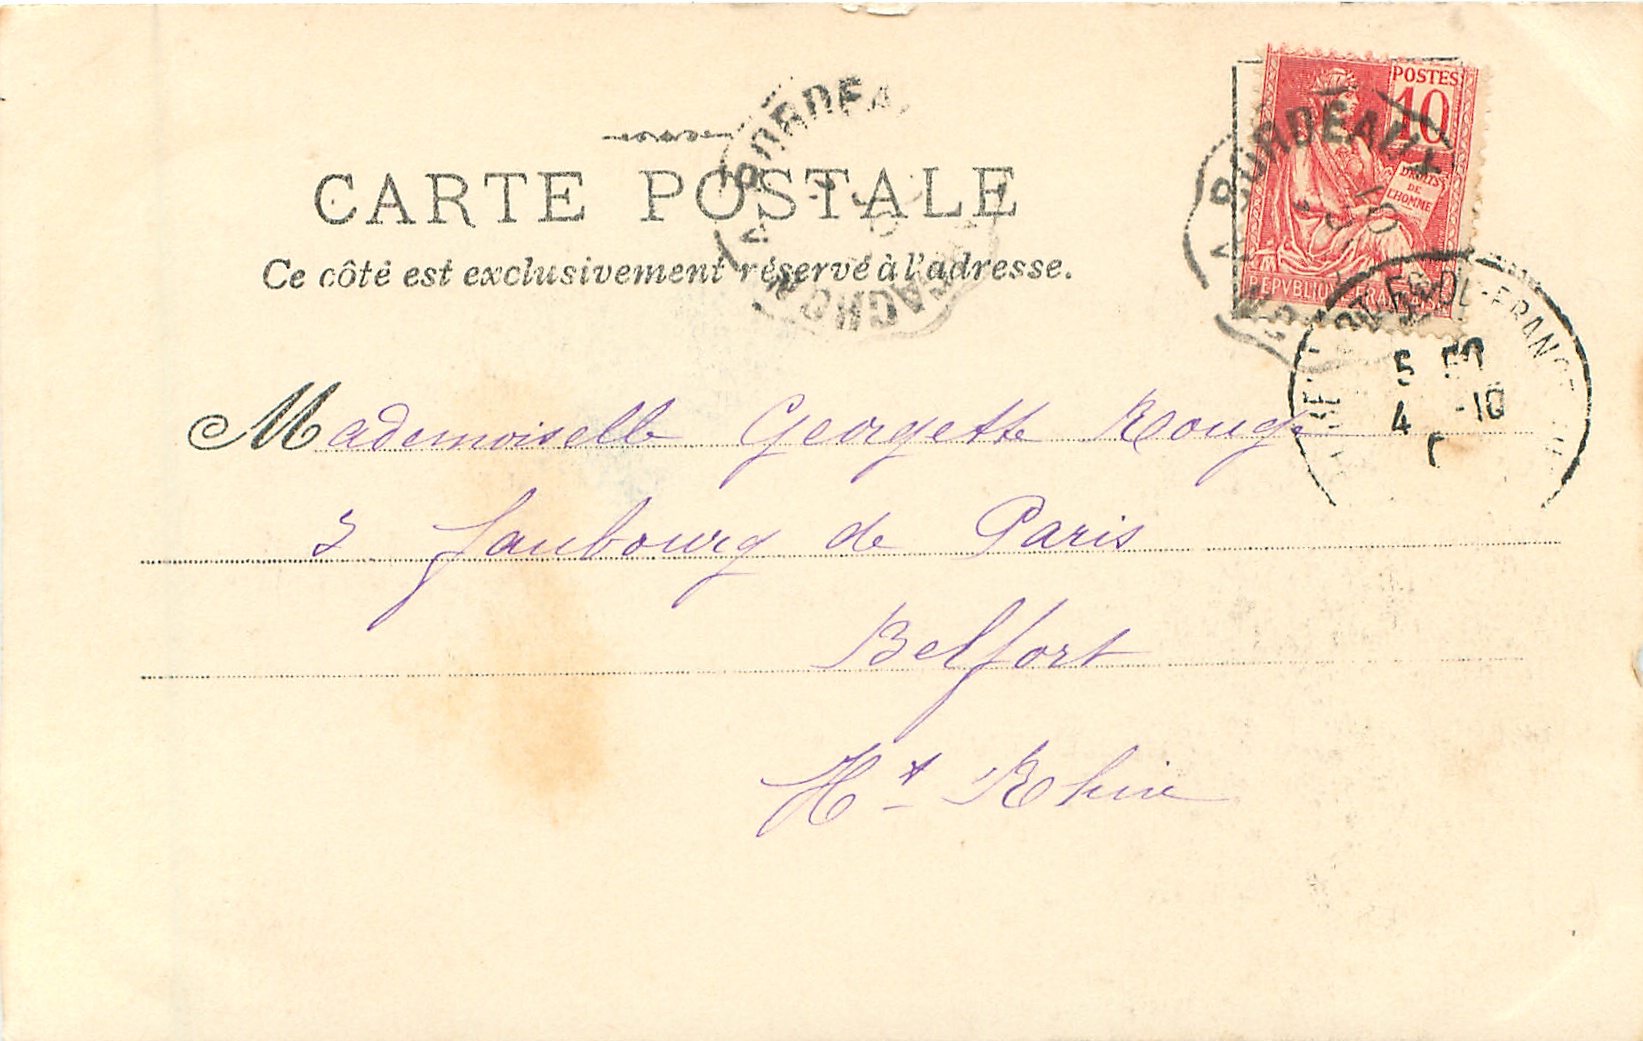 CARTE POSTALE
Ce côté est exclusivement réservé à l'adresse.
POSTES
10
DROITS
DE
L'HOMME
REPVBLIQVE FRANÇAISE
BORDEAUX
BORDEAUX
5
4 -10
Mademoiselle Georgette
Faubourg de Paris
Belfort
Ht Rhin